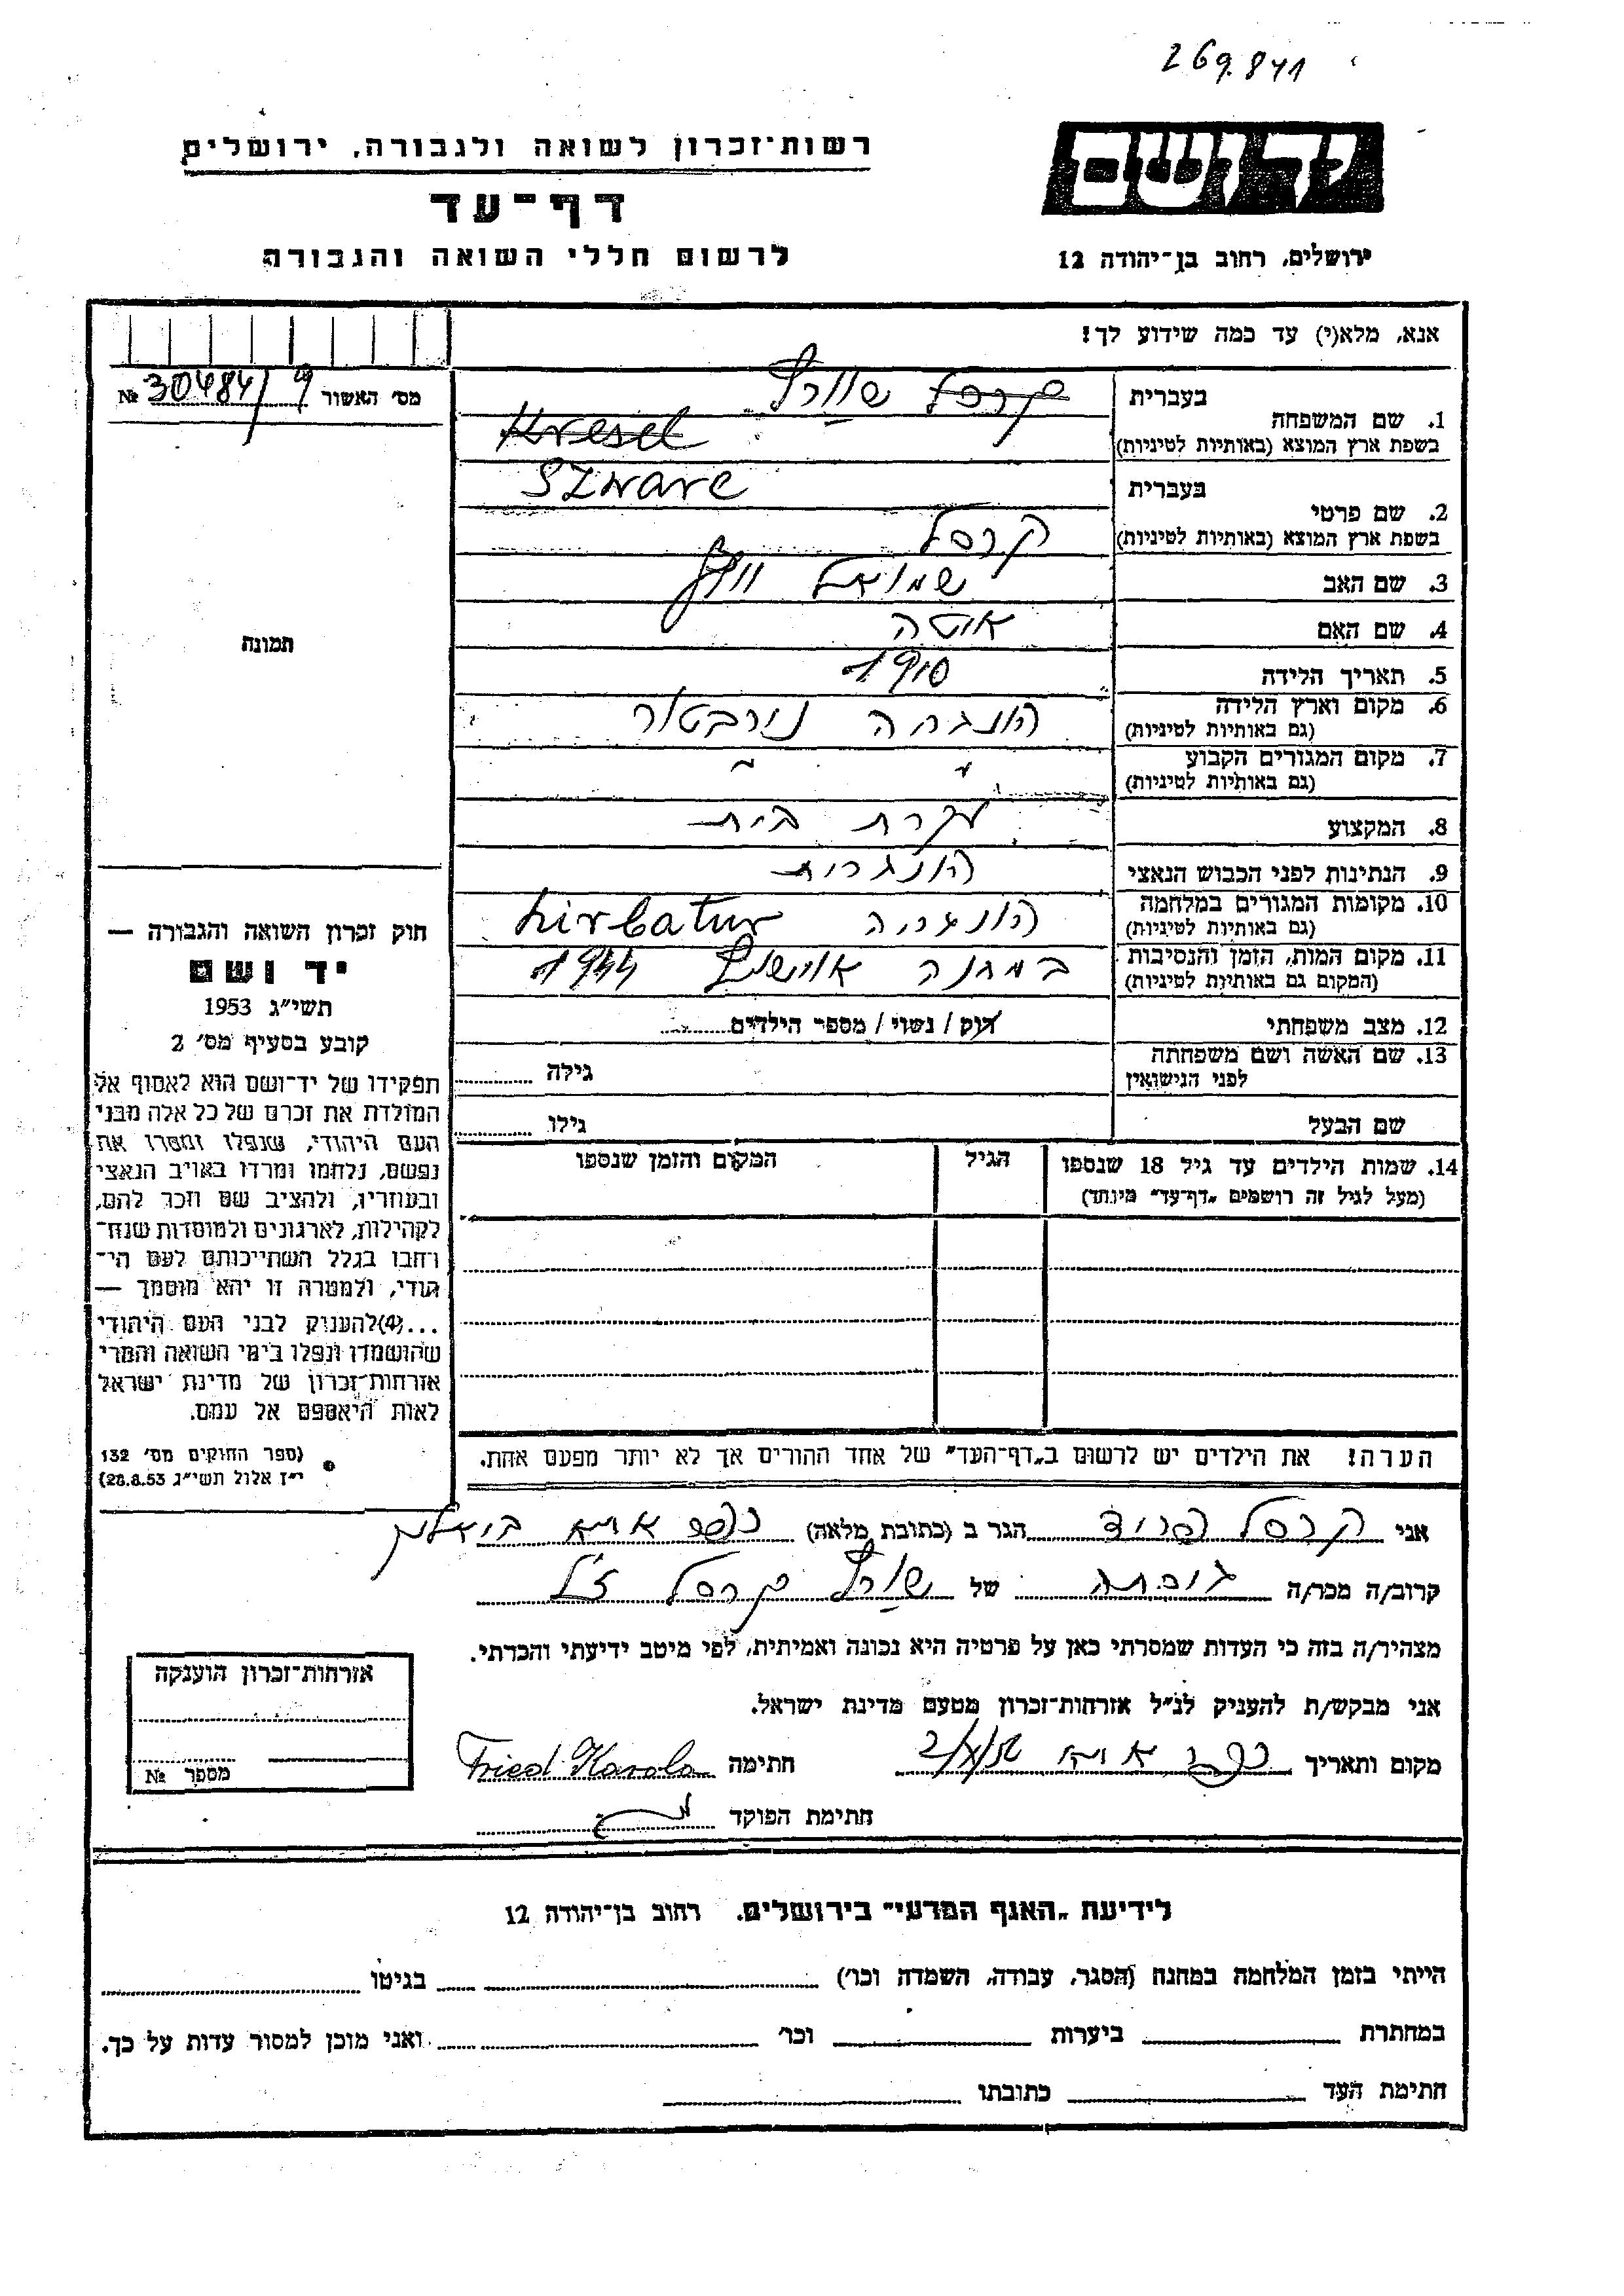 269.841
ידושם
רשות־זכרון לשואה ולגבורה, ירושלים
דף־עד
ירושלים, רחוב בן־יהודה 12
לרשום חללי השואה והגבורה
אנא, מלא(י) עד כמה שידוע לך!
מס' האשור 30484/9 №
בעברית קרסל שוורץ
1. שם המשפחה
בשפת ארץ המוצא (באותיות לטיניות) Kresel
Szwarc
בעברית
2. שם פרטי
בשפת ארץ המוצא (באותיות לטיניות) קרסל
3. שם האב שמואל וולף
4. שם האם אוטה
5. תאריך הלידה 1910
6. מקום וארץ הלידה
(גם באותיות לטיניות) הונגריה נירבטור
7. מקום המגורים הקבוע
(גם באותיות לטיניות) " "
8. המקצוע עקרת בית
9. הנתינות לפני הכבוש הנאצי הונגרית
10. מקומות המגורים במלחמה
(גם באותיות לטיניות) הונגריה nirbatur
11. מקום המות, הזמן והנסיבות
(המקום גם באותיות לטיניות) במחנה אוישוויץ 1944
12. מצב משפחתי רווק / נשוי / מספר הילדים
13. שם האשה ושם משפחתה
לפני הנישואין גילה
שם הבעל גילו
14. שמות הילדים עד גיל 18 שנספו הגיל המקום והזמן שנספו
(מעל לגיל זה רושמים „דף־עד" מיוחד)
הערה! את הילדים יש לרשום ב„דף־העד" של אחד ההורים אך לא יותר מפעם אחת.
תמונה
חוק זכרון השואה והגבורה —
יד ושם
תשי״ג 1953
קובע בסעיף מס' 2
תפקידו של יד־ושם הוא לאסוף אל
המולדת את זכרם של כל אלה מבני
העם היהודי, שנפלו ומסרו את
נפשם, נלחמו ומרדו באויב הנאצי
ובעוזריו, ולהציב שם וזכר להם,
לקהילות, לארגונים ולמוסדות שנח־
רחבו בגלל השתייכותם לעם הי־
הודי, ולמטרה זו יהא מוסמך —
...(4)להעניק לבני העם היהודי
שהושמדו ונפלו בימי השואה והמרי
אזרחות־זכרון של מדינת ישראל
לאות היאספם אל עמם.
(ספר החוקים מס' 132
י״ז אלול תשי״ג 28.8.53)
אני קרסל פריד הגר ב (כתובת מלאה)
קרוב/ה מכר/ה של שורץ קרסל ז״ל
מצהיר/ה בזה כי העדות שמסרתי כאן על פרטיה היא נכונה ואמיתית, לפי מיטב ידיעתי והכרתי.
אני מבקש/ת להעניק לנ״ל אזרחות־זכרון מטעם מדינת ישראל.
מקום ותאריך חתימה Fried Karola
חתימת הפוקד
אזרחות־זכרון הוענקה
מספר №
לידיעת „האגף המדעי" בירושלים. רחוב בן־יהודה 12
הייתי בזמן המלחמה במחנה (הסגר, עבודה, השמדה וכו') בגיטו
במחתרת ביערות וכו' ואני מוכן למסור עדות על כך.
חתימת העד כתובתו